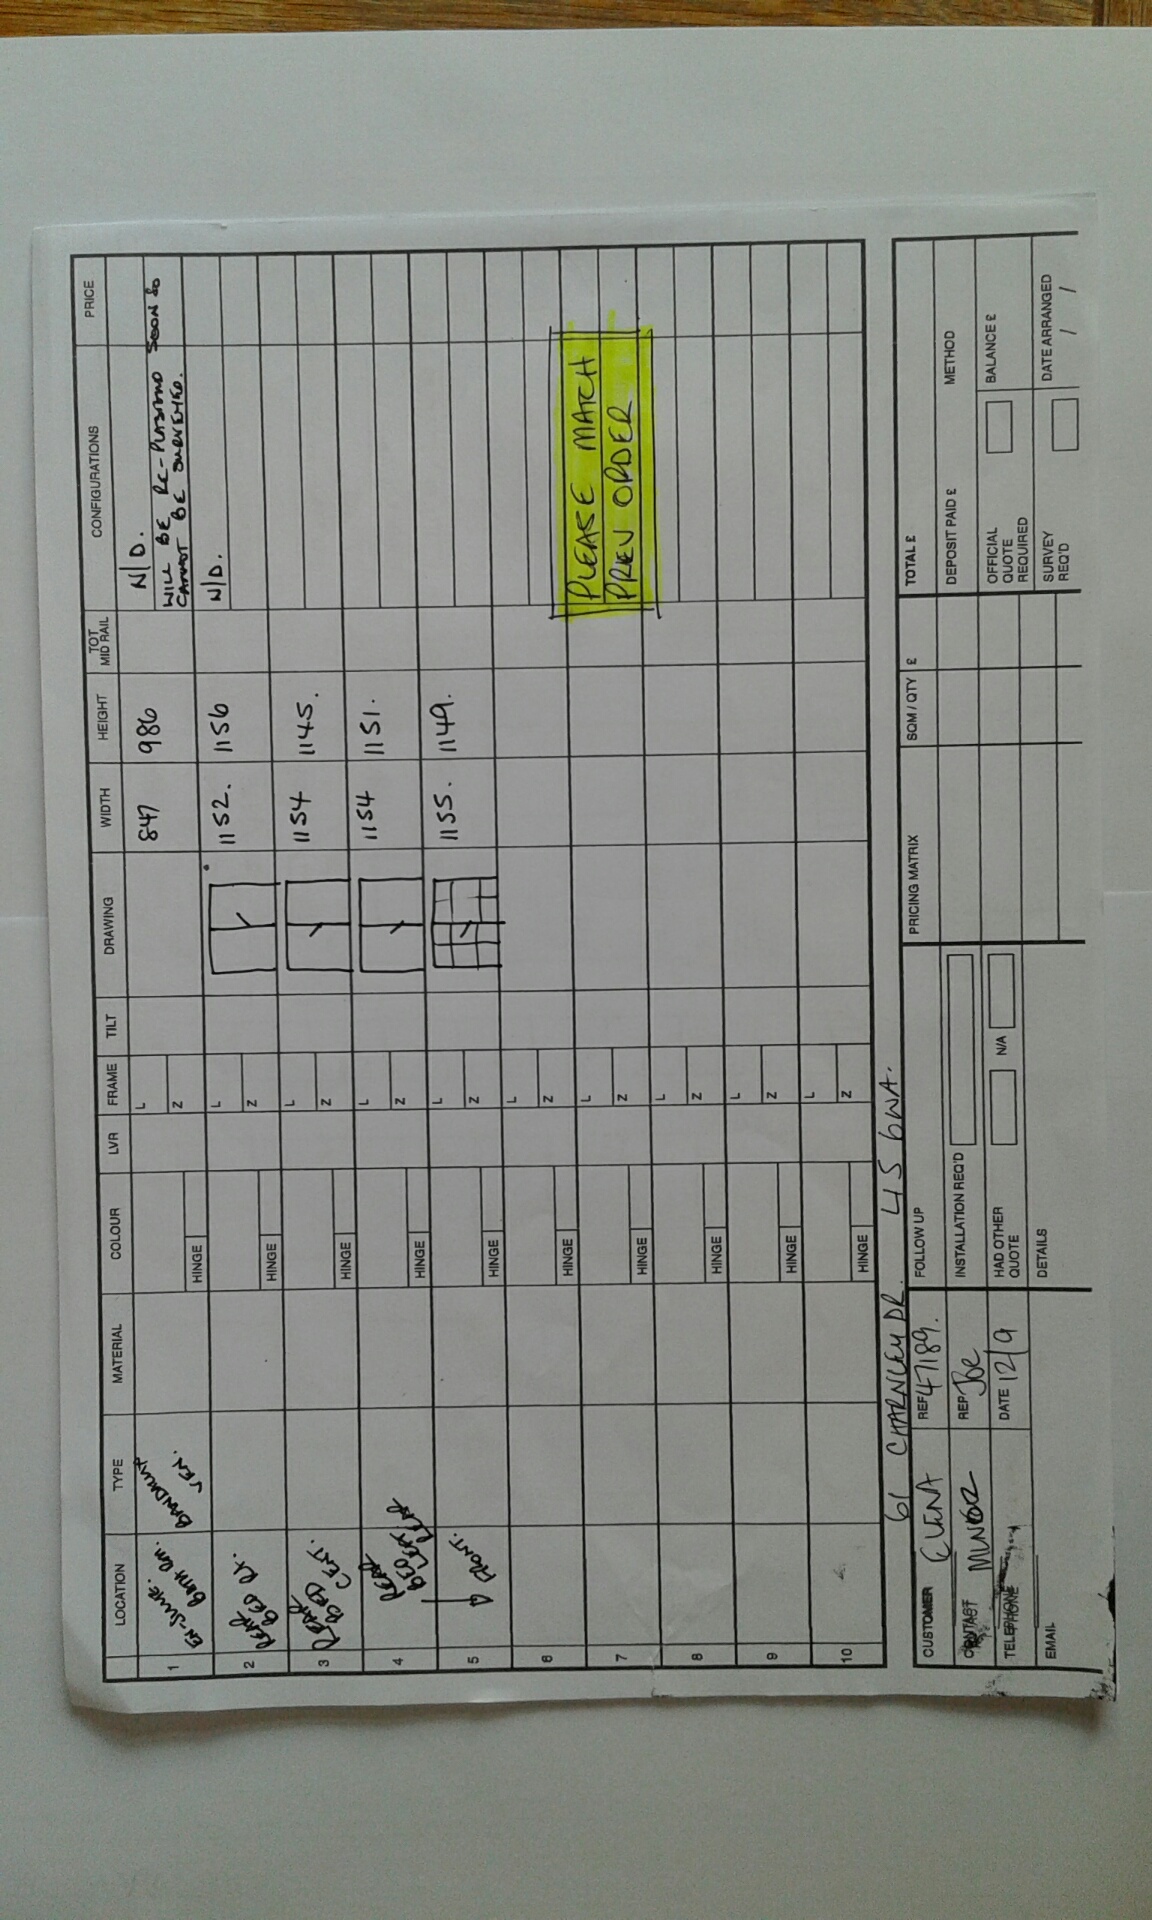 LOCATION TYPE MATERIAL COLOUR LVR FRAME TILT DRAWING WIDTH HEIGHT TOT MID RAIL CONFIGURATIONS PRICE
1 EN-SUITE. BATH RM. VEN. HINGE L Z 847 986 N/D.
WILL BE RE-PLASTERED SOON SO
CANNOT BE SURVEYED.
2 REAR BED RT. HINGE L Z 1152. 1156 N/D.
3 REAR BED CENT. HINGE L Z 1154 1145.
4 REAR BED LEFT REAR HINGE L Z 1154 1151.
5 FRONT. HINGE L Z 1155. 1149.
6 HINGE L Z
7 HINGE L Z PLEASE MATCH
PREV ORDER
8 HINGE L Z
9 HINGE L Z
10 HINGE L Z
61 CHARNLEY DR. 6WA.
CUSTOMER REF 47189. FOLLOW UP PRICING MATRIX SQM / QTY £ TOTAL £
CONTACT REP JOE INSTALLATION REQ'D DEPOSIT PAID £ METHOD
TELEPHONE DATE 12/9 HAD OTHER QUOTE N/A OFFICIAL QUOTE REQUIRED BALANCE £
EMAIL DETAILS SURVEY REQ'D DATE ARRANGED / /